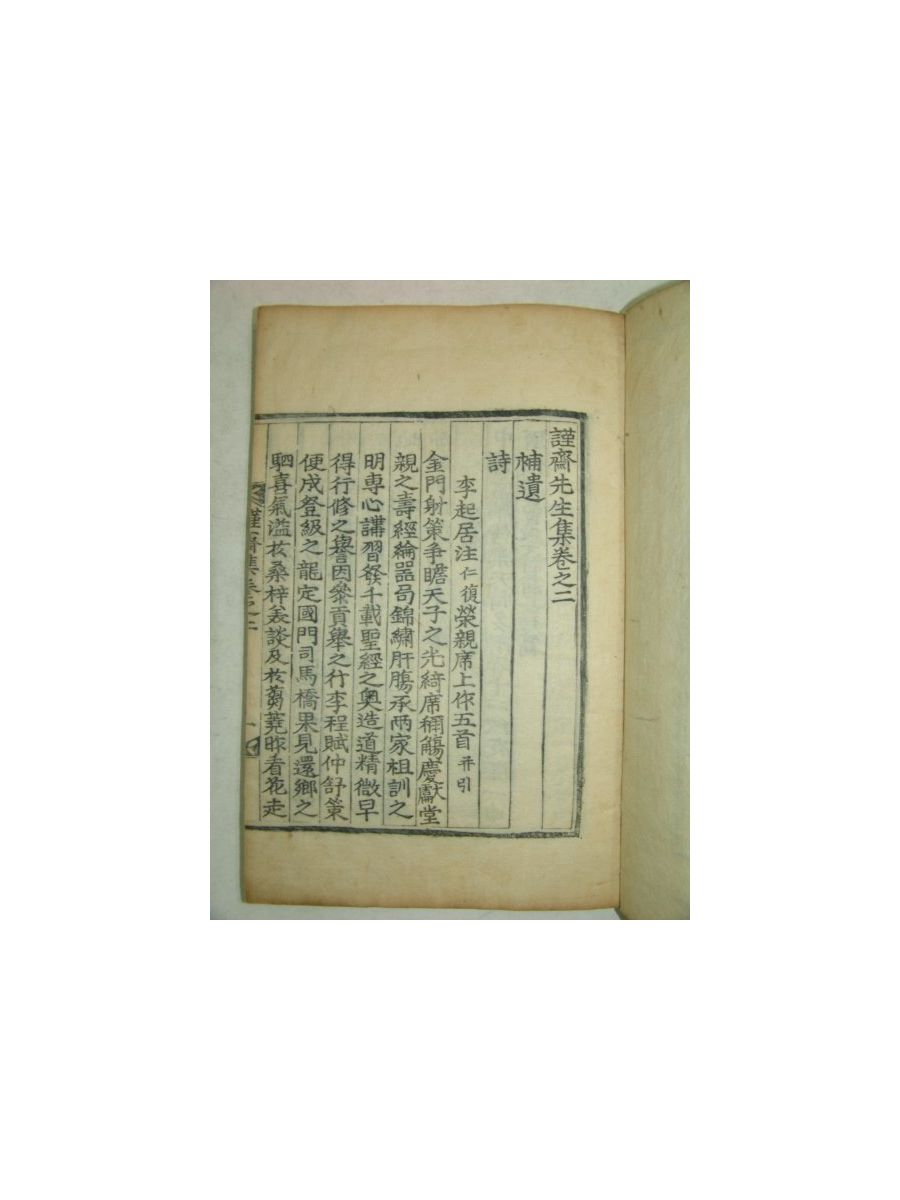 謹齋先生集卷之二
補遺
詩
李起居注仁復榮親席上作五首并引
金門射策爭瞻天子之光綺席稱觴慶獻堂
親之壽經綸器局錦繡肝膓承兩家祖訓之
明專心講習發千載聖經之奧造道精微早
得行修之譽因叅貢舉之行李程賦仲舒策
便成登級之龍定國門司馬橋果見還鄉之
駟喜氣溢於桑梓羙談及於蒭蕘昨看花走
謹齋集卷之二
一